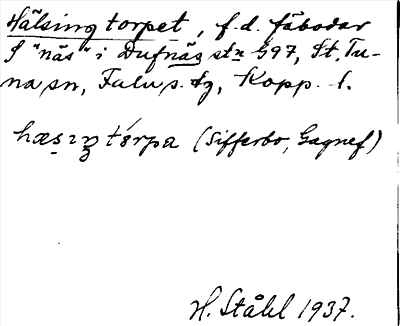 Hälsingtorpet, f.d. fäbodar
på "näs" i Dufnäs stn 597, St. Tu-
na sn, Falu s. tg, Kopp. l.
(Sifferbo, Gagnef)
H. Ståhl 1937.